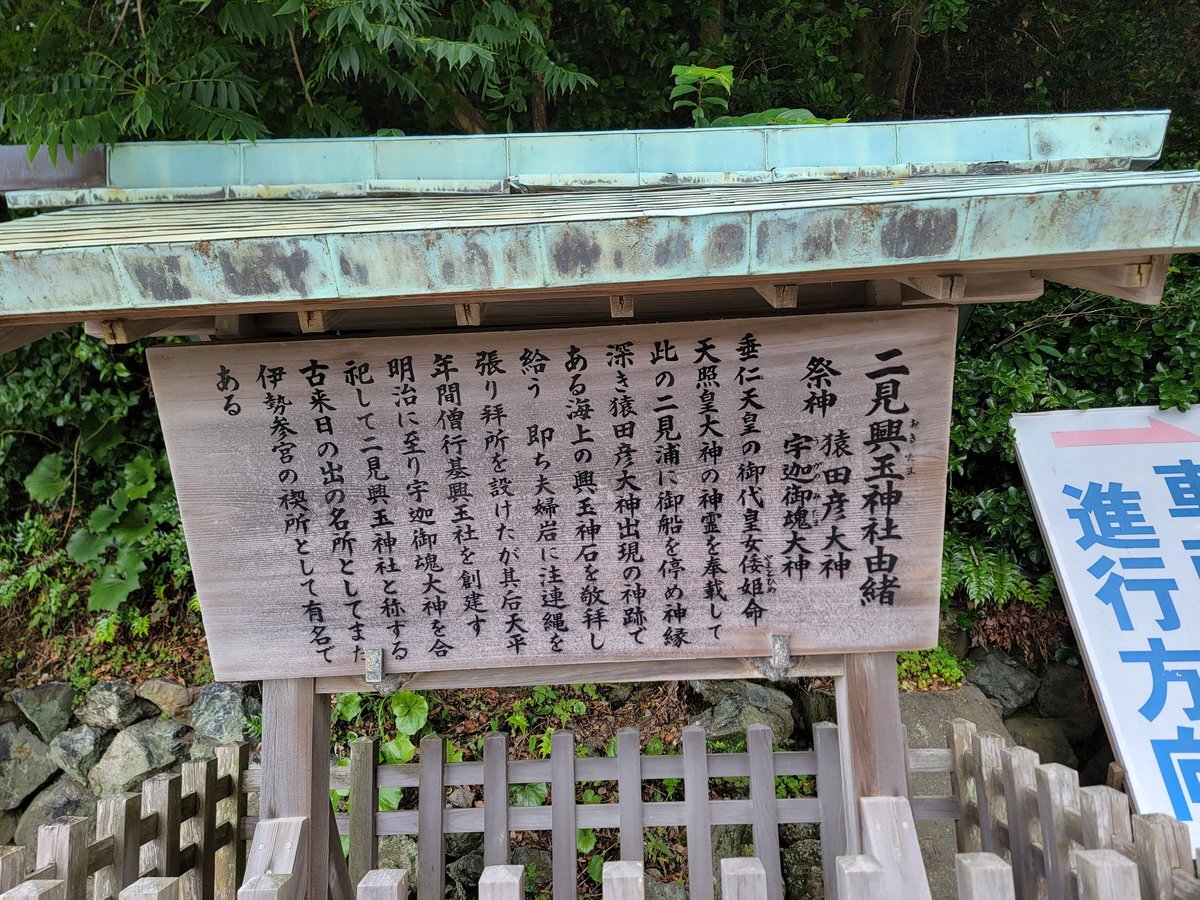 二見興玉神社由緒
おきたま
祭神 猿田彦大神
宇迦御魂大神
垂仁天皇の御代皇女倭姫命
やまとひめ
天照皇大神の神霊を奉載して
此の二見浦に御船を停め神縁
深き猿田彦大神出現の神跡で
ある海上の興玉神石を敬拝し
給う 即ち夫婦岩に注連縄を
張り拝所を設けたが其后天平
年間僧行基興玉社を創建す
明治に至り宇迦御魂大神を合
祀して二見興玉神社と称する
古来日の出の名所としてまた
伊勢参宮の禊所として有名で
ある
車
進行方向